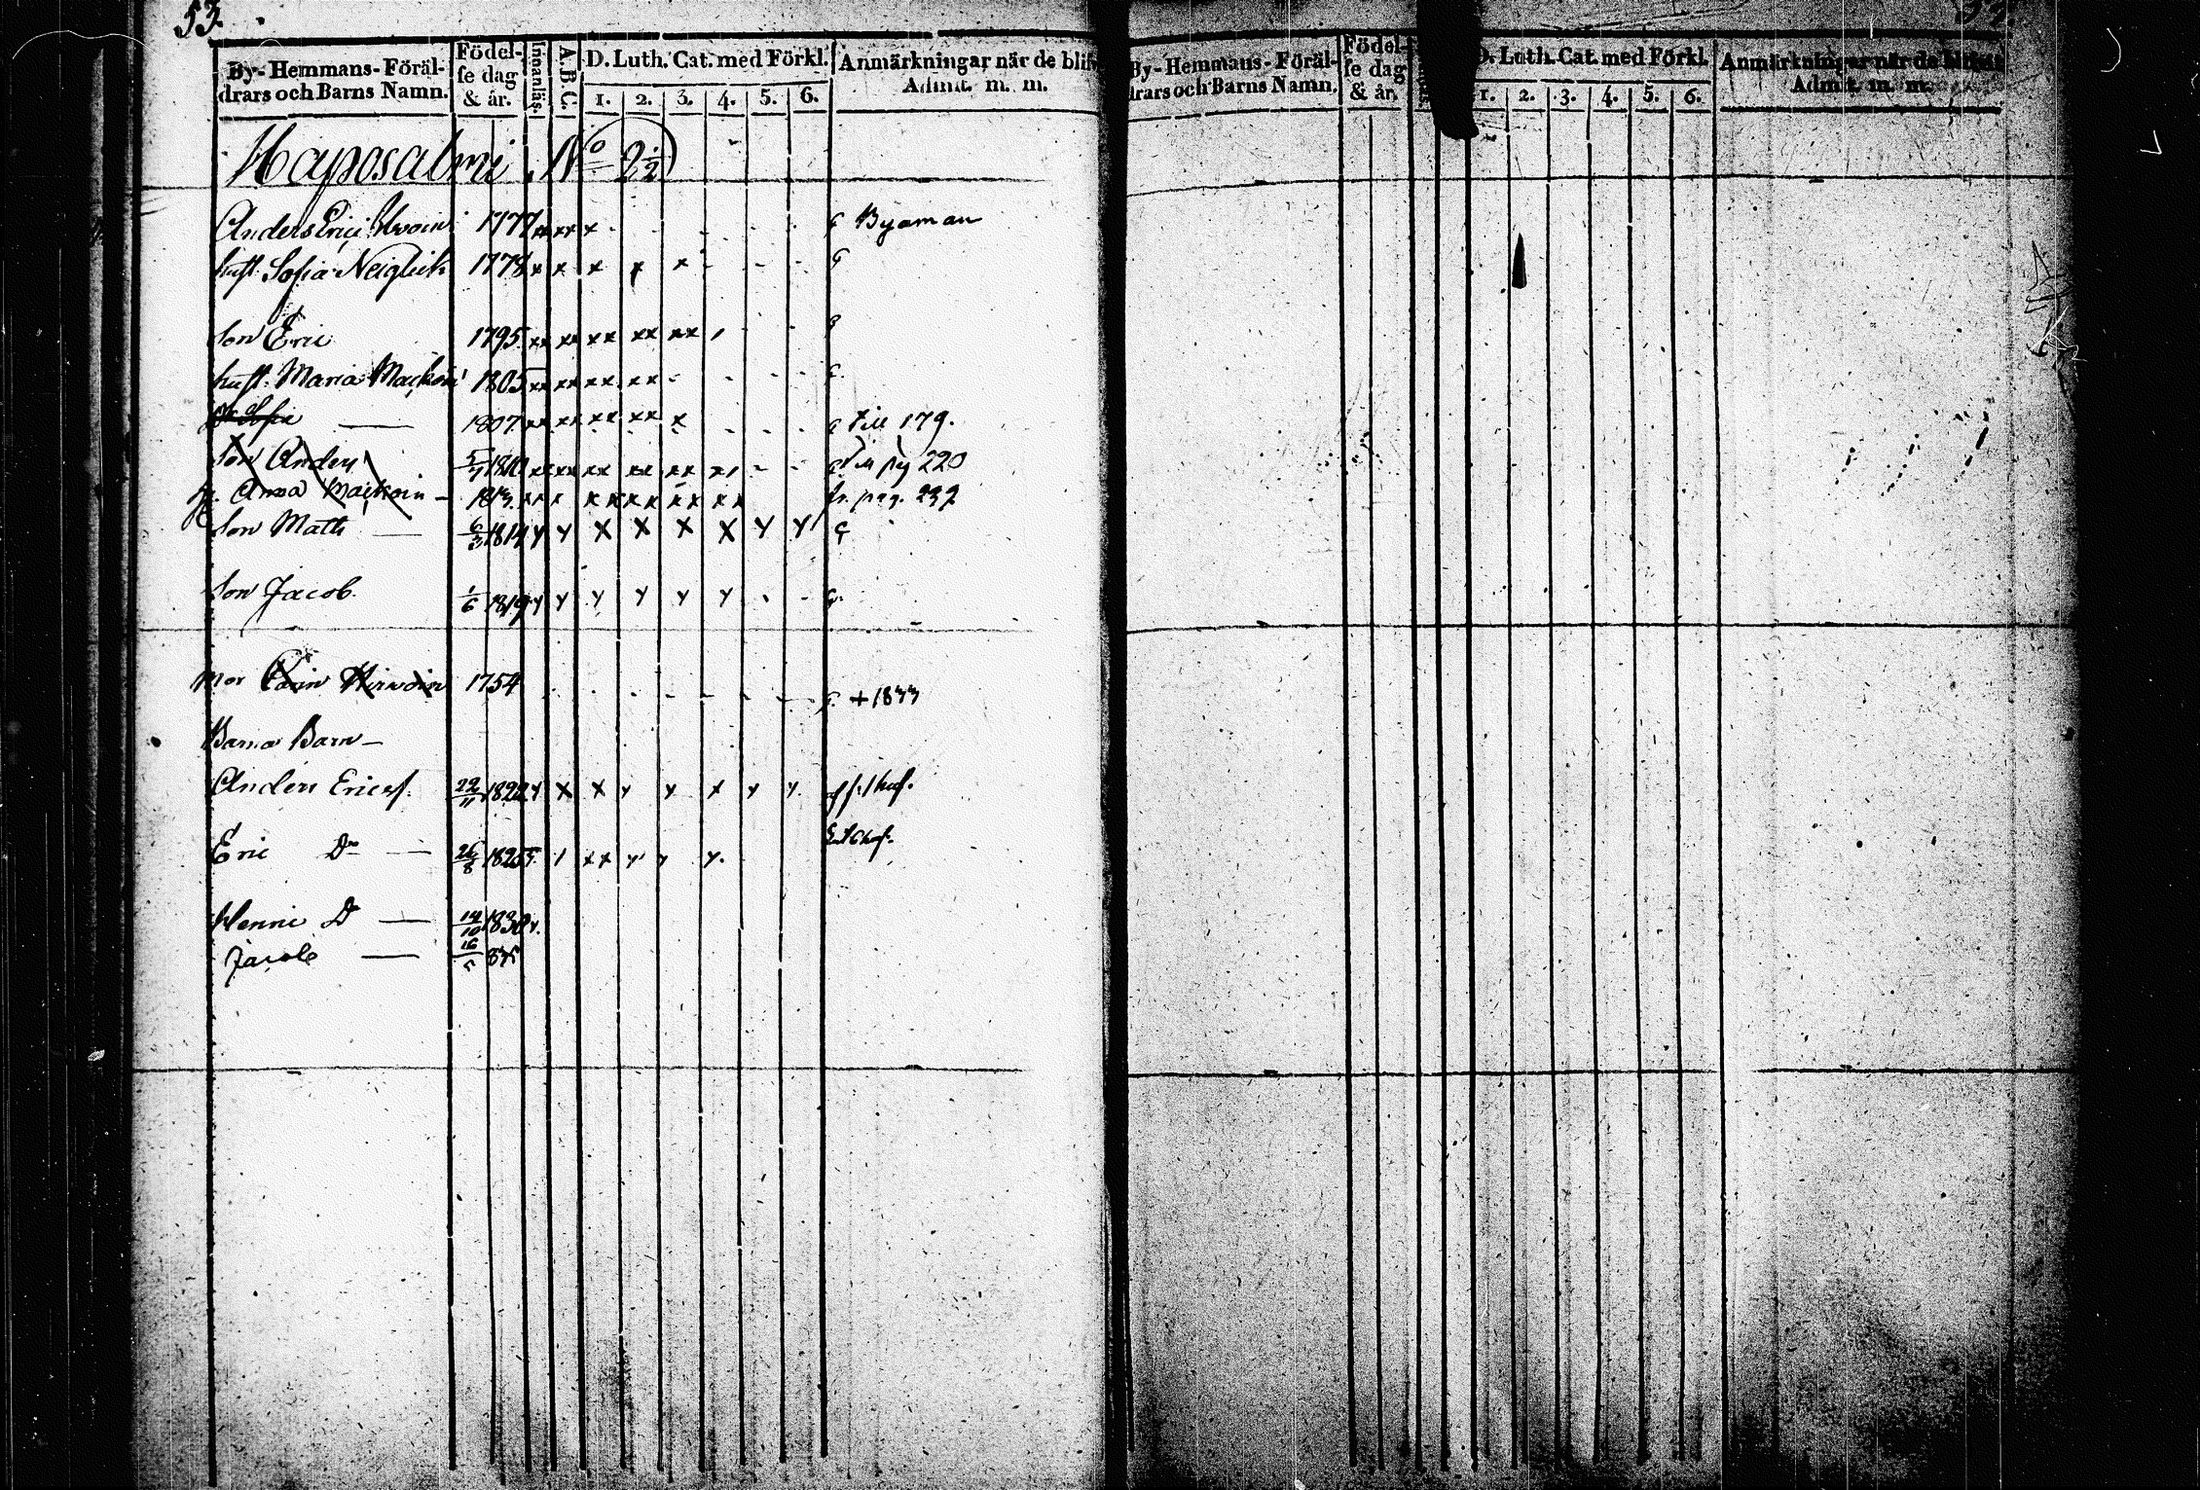 53.
By-Hemmans-Föräl-
drars och Barns Namn.
Födel-
se dag
& år.
Innanläs.
A.B.C.
D. Luth. Cat. med Förkl.
1. 2. 3. 4. 5. 6.
Anmärkningar när de blifv
Admit. m. m.
Haposalmi No 2 1/2
Anders Erici 1777 xx xx x Byaman
hust. Sofia Neiglick 1778 x x x x x
Son Eric 1795 xx xx xx xx xx
hust. Maria 1805 xx xx xx xx
Sofia 1807 xx xx xx xx x till 179.
Son Anders 5/7 1810 xx xx xx xx xx till pag 220
Anna 1813 fr. pag. 232
Son Matts 6/3 1814
Son Jacob 1/6 1819
Mor Carin Hirvoin 1754 + 1833
Barna Barn
Anders Ericss. 22/11 1822
Eric Do 26/8 1825
Henric D 14/10 1830
Jacob 16/5 835
By-Hemmans-Föräl-
drars och Barns Namn.
Födel-
se dag
& år.
D. Luth. Cat. med Förkl.
1. 2. 3. 4. 5. 6.
Anmärkningar när de blifvit
Admit. m. m.